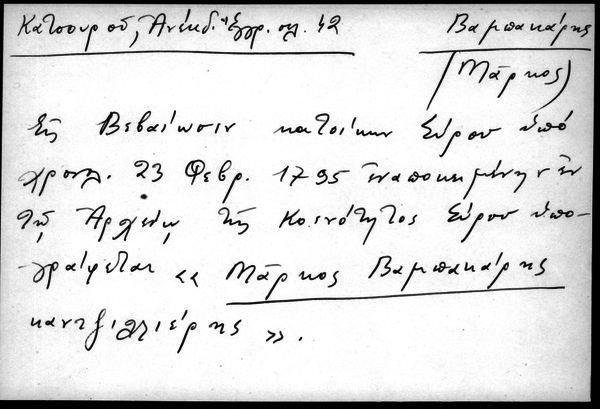 Κατσουροῦ, Ἀνέκδ. Ἔγγρ. σλ. 42
Βαμπακάρης
(Μᾶρκος)
Εἰς Βεβαίωσιν κατοίκων Σύρου ὑπό
χρονλ. 23 Φεβρ. 1795 ἐναποκειμένην ἐν
τῷ Ἀρχείῳ τῆς Κοινότητος Σύρου ὑπο-
γράφεται «Μᾶρκος Βαμπακάρης
καντζιλιέρης».